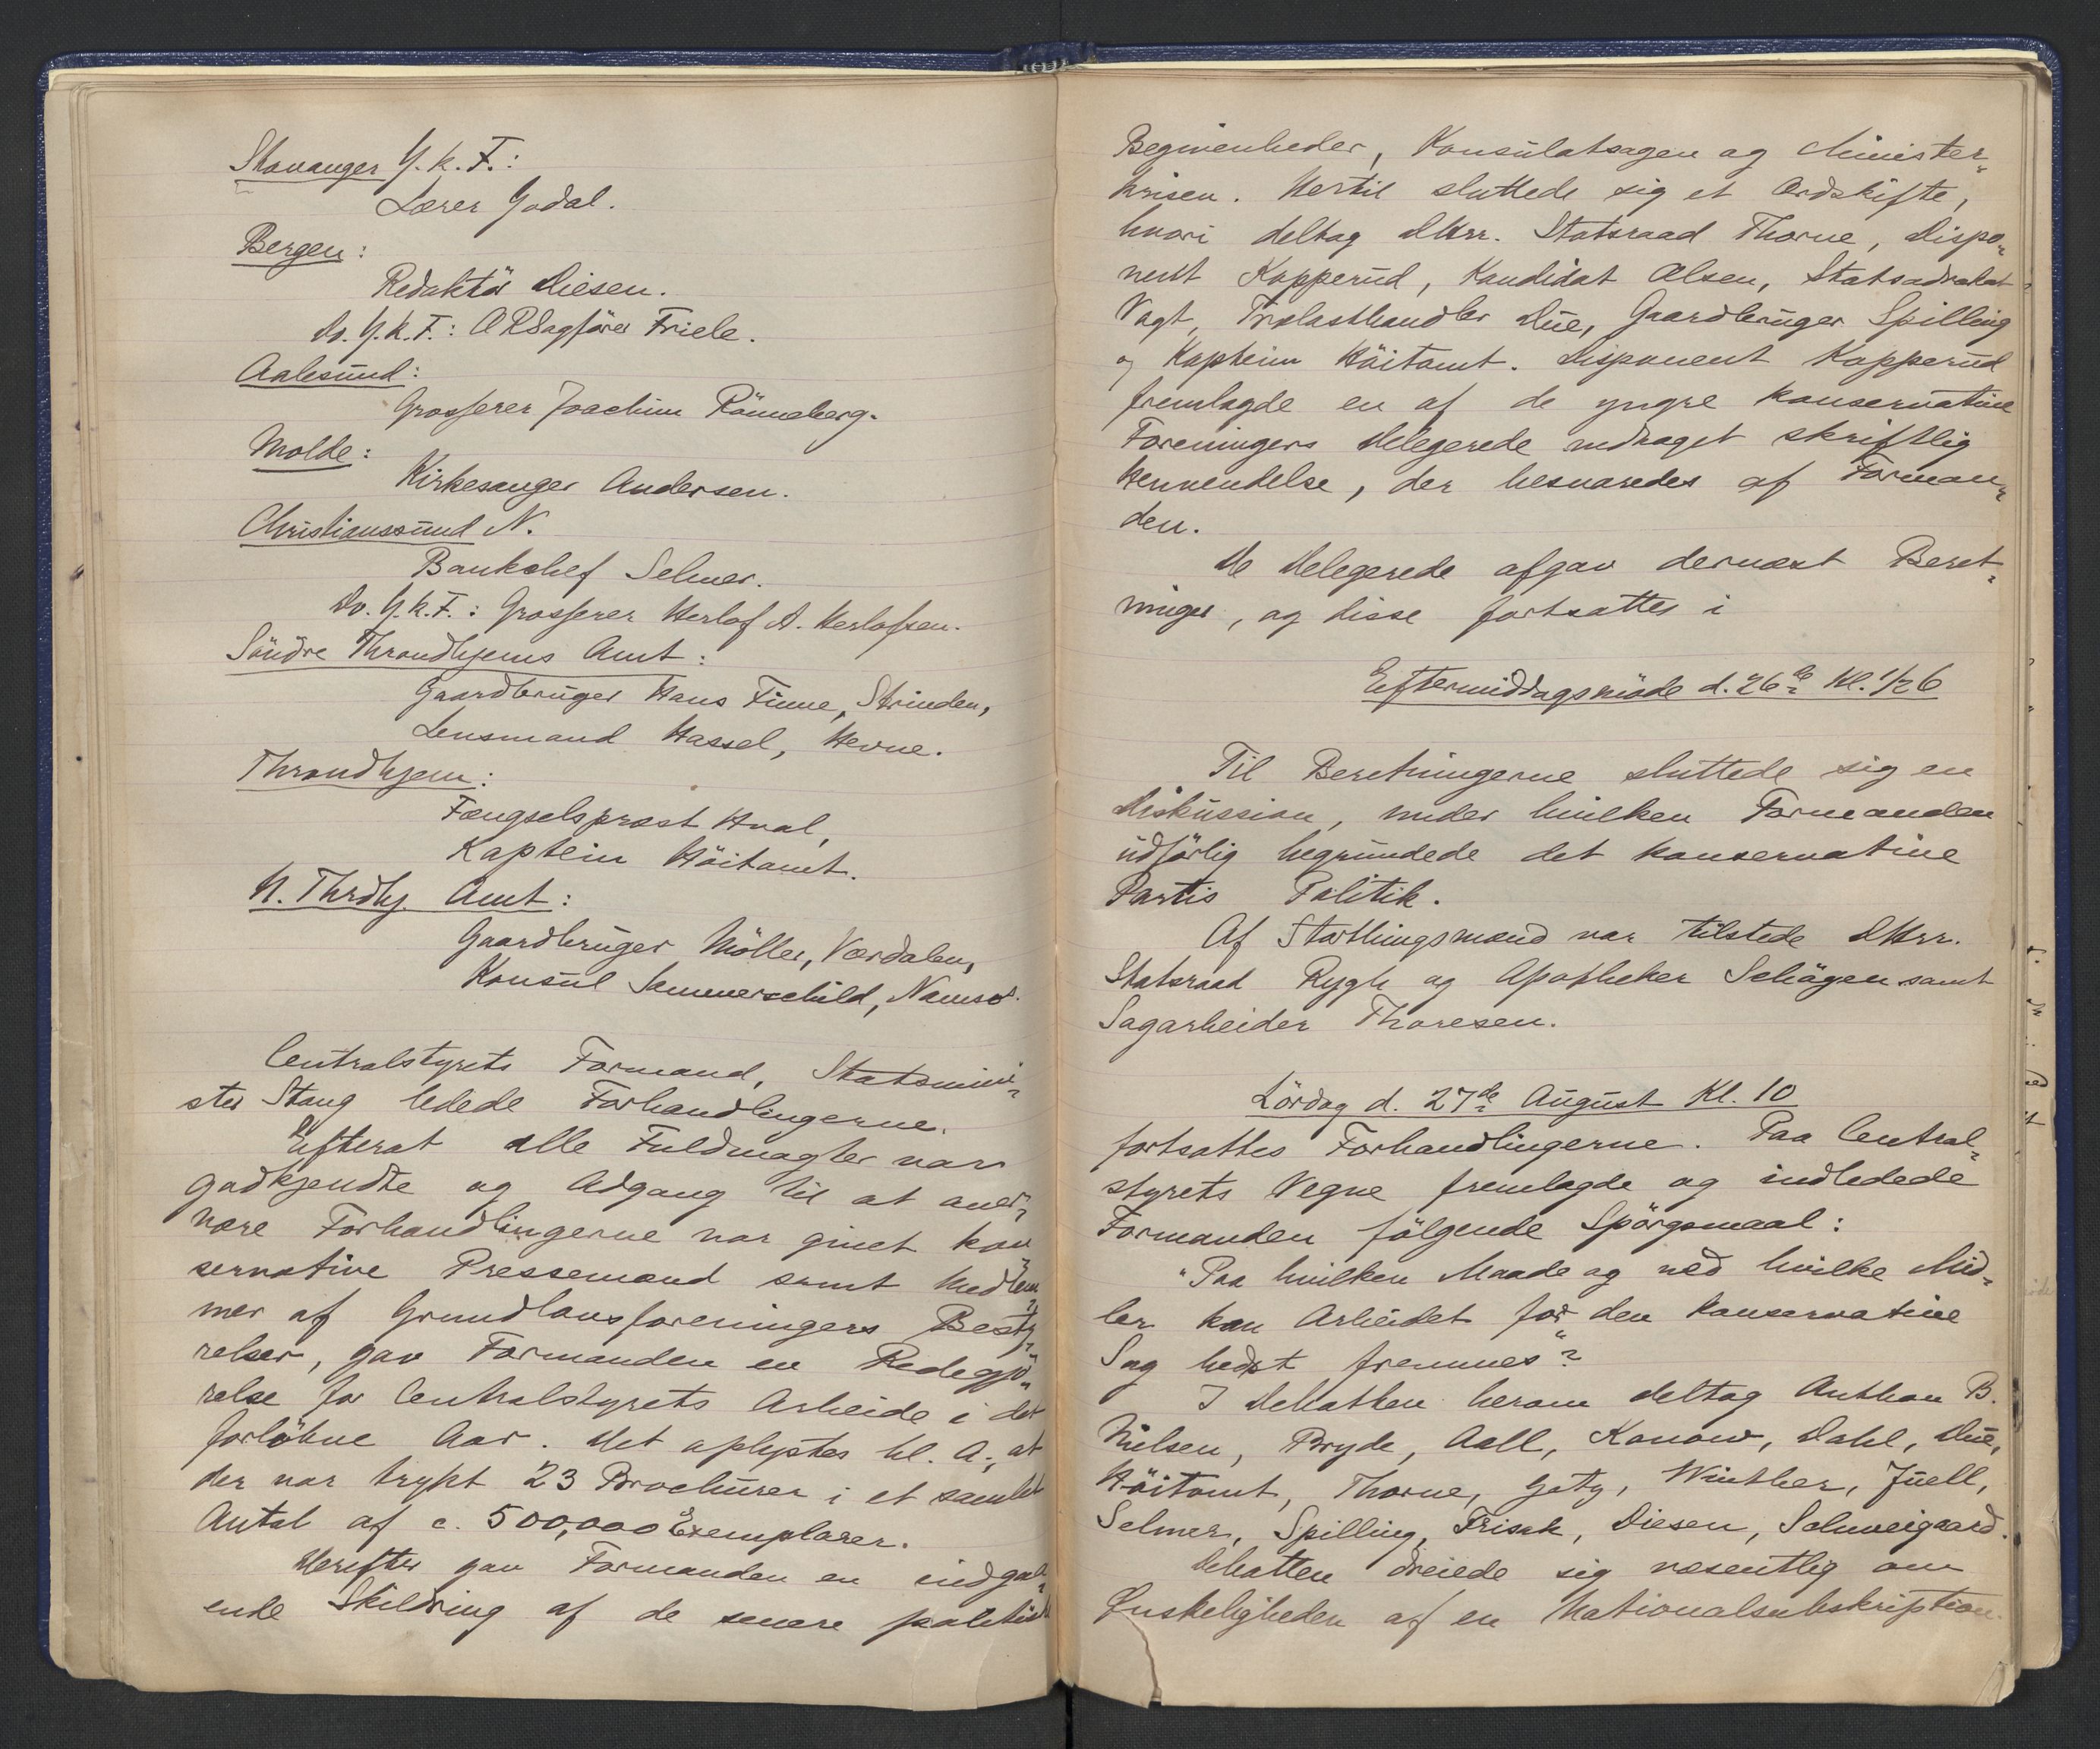 Stavanger Y. k. F.:
Lærer Godal.
Bergen:
Redaktör Diesen.
Do. Y. k. F.: ORSagförer Friele.
Aalesund:
Grosserer Joachim Rönneberg.
Molde:
Kirkesanger Andersen.
Christianssund N.
Bankchef Selmer.
Do. Y. k. F.: Grosserer Herlof A. Herlofsen.
Söndre Throndhjems Amt:
Gaardbruger Hans Finne, Strinden,
Lensmand Hassel, Hevne.
Throndhjem:
Fængselspræst Hval,
Kaptein Höitomt.
N. Thrdhj. Amt:
Gaardbruger Möller, Værdalen,
Konsul Sommerschild, Namsos.
Centralstyrets Formand, Statsmini-
ster Stang ledede Forhandlingerne.
Efterat alle Fuldmagter var
godkjendte og Adgang til at over-
være Forhandlingerne var givet kon-
servative Pressemænd samt Medlem-
mer af Grundlovsforeningers Besty-
relser, gav Formanden en Redegjö-
relse for Centralstyrets Arbeide i det
forlöbne Aar. Det oplystes bl. A., at
der var trykt 23 Brochurer i et samlet
Antal af c. 500,000 Exemplarer.
Derefter gav Formanden en indgaa-
ende Skildring af de senere politiske
Begivenheder, Konsulatsagen og Minister-
krisen. Hertil sluttede sig et Ordskifte,
hvori deltog DHrr. Statsraad Thorne, Dispo-
nent Kopperud, Kandidat Olsen, Statsadvokat
Vogt, Trælasthandler Due, Gaardbruger Spilling
og Kaptein Höitomt. Disponent Kopperud
fremlagde en af de yngre konservative
Foreningers Delegerede vedtaget skriftlig
Henvendelse, der besvaredes af Forman-
den.
De Delegerede afgav dernæst Beret-
ninger, og disse fortsattes i
Eftermiddagsmöde d. 26de Kl. 1/2 6
Til Beretningerne sluttede sig en
Diskussion, under hvilken Formanden
udförlig begrundede det konservative
Partis Politik.
Af Storthingsmænd var tilstede DHrr.
Statsraad Rygh og Apotheker Schögen samt
Sagarbeider Thoresen.
Lördag d. 27de August Kl. 10
fortsattes Forhandlingerne. Paa Central-
styrets Vegne fremlagde og indledede
Formanden fölgende Spörgsmaal:
"Paa hvilken Maade og ved hvilke Mid-
ler kan Arbeidet for den konservative
Sag bedst fremmes"?
I Debatten herom deltog Anthon B.
Nielsen, Bryde, Aall, Konow, Dahl, Due,
Höitomt, Thorne, Getz, Winther, Juell,
Selmer, Spilling, Frisak, Diesen, Schweigaard.
Debatten dreiede sig væsentlig om
Ønskeligheden af en Nationalsubskription